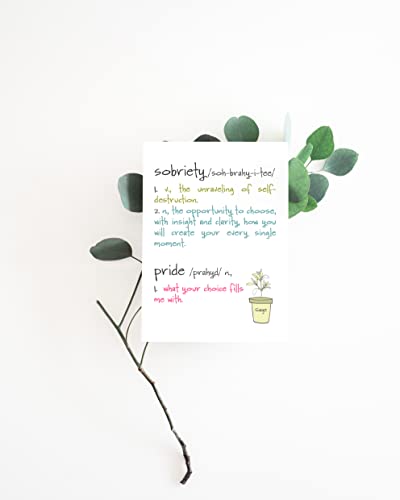 sobriety /soh-brahy-i-tee/
1. v., the unraveling of self-
destruction.
2. n., the opportunity to choose,
with insight and clarity, how you
will create your every single
moment.
pride /prahyd/ n.,
1. what your choice fills
me with.
Sage